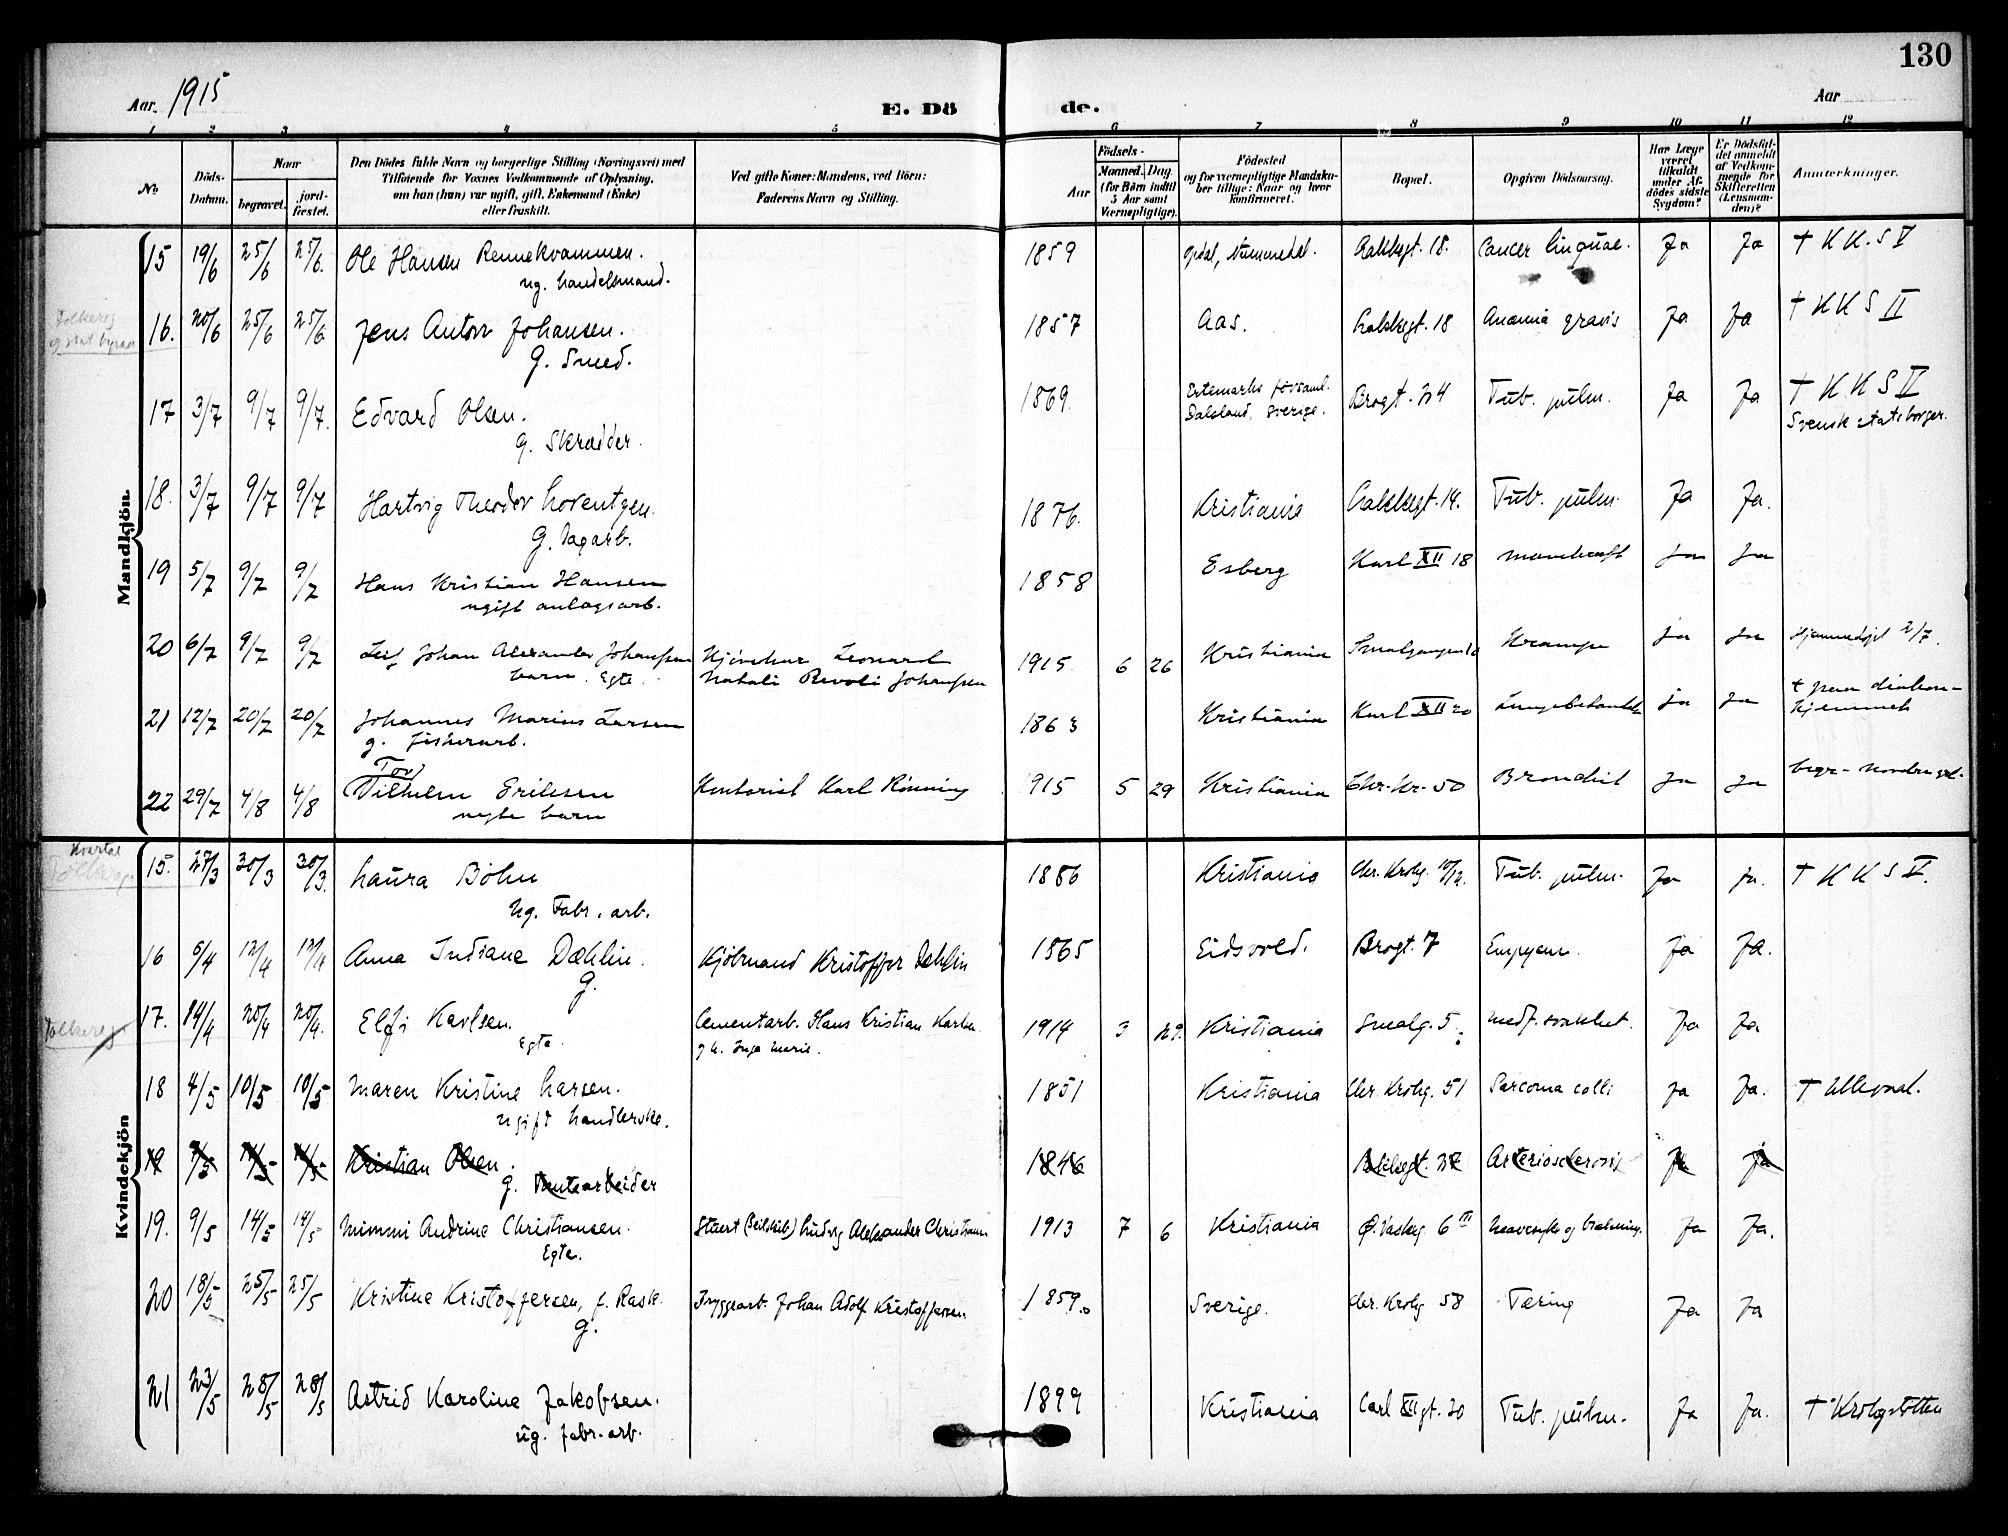 130
Aar. 1915
E. Dö
de.
Aar
1 2 3 4 5 6 7 8 9 10 11 12
No
Döds-Datum.
Naar
begravet.
jord-fæstet.
Den Dödes fulde Navn og borgerlige Stilling (Næringsvei) med
Tilföiende for Voxnes Vedkommende af Oplysning,
om han (hun) var ugift, gift, Enkemand (Enke)
eller fraskilt.
Ved gifte Koner: Mandens, ved Börn:
Faderens Navn og Stilling.
Födsels-
Aar
Maaned. Dag.
(for Börn indtil
5 Aar samt
Værnepligtige).
Födested
og for værnepligtige Mandska-
ber tillige: Naar og hvor
konfirmeret.
Bopæl.
Opgiven Dödsaarsag.
Har Læge
været
tilkaldt
under Af-
dödes sidste
Sygdom?
Er Dödsfal-
det anmeldt
af Vedkom-
mende for
Skifteretten
(Lensman-
den)?
Anmærkninger.
Mandkjön
15 19/6 25/6 25/6. Ole Hansen Rennekvammen. 1859 Opdal, Nummedal. Cancer linguae. Ja Ja † K K. S V
ug. handelsmand.
16. 20/6 25/6 25/6 Jens Anton Johansen. 1857 Aas. Anæmia gravis Ja Ja † K K S II
G. Smed.
17 3/7 9/7 9/7. Edvard Olsen. 1869. Dalsland, Sverige. Brogt. 34 Tub. pulm. Ja Ja † K K S II
g. Skrædder. Svensk statsborger.
18. 3/7 9/7 9/7 Hartvig Theodor Lorentzen. 1876. Kristiania Tub. pulm. Ja Ja.
G. Dagarb.
19 5/7 9/7 9/7 Hans Kristian Hansen 1858 Esberg Karl XII 18 ja ja
ugift anlagsarb.
20 6/7 9/7 9/7 Leif Johan Alexander Johanssen Leonard 1915 6 26 Kristiania Krampe ja ja Hjemmedøpt 2/7.
barn. Egte. Natali Johanssen
21 12/7 20/7 20/7 Johannes Marius Larsen 1863 Kristiania Karl XII 20 ja ja † paa diakon-
g. fiskerarb. hjemmet
Tor
22 29/7 4/8 4/8 Vilhelm Eriksen Kontorist Karl Rönning 1915 5 29 Kristiania Chr. Kr. 50 Bronchit ja ja
uegte barn
Kvindekjön
15. 27/3 30/3 30/3. Laura Böhn 1886 Kristiania Chr. Krohg. Tub. pulm. Ja ja. † K K S V.
Ug. Fabr. arb.
16 6/4 12/4 12/4 Anna Indiane Dæhlin. Kjöbmand Kristoffer Dæhlin 1865 Eidsvold. Brogt. 7 Empyem. Ja Ja.
G.
17. 14/4 20/4 20/4. Elfi Karlsen. Cementarb. Hans Kristian Karlsen 1914 3 29. Kristiania Smalg. 5. Medf. svakhet. Ja Ja
Egte. og h. Inga Marie.
18 4/5 10/5 10/5 Maren Kristine Larsen. 1851 Kristiania Chr. Krohg. 51 Sarcoma colli ja Ja. † Ullevaal.
Ugift handlerske.
19 Kristian Olsen. 1846 Arteriosclerosis Ja Ja
g. Tomtearbeider
19. 9/5 14/5 14/5 Mimmi Andrine Christiansen. Stuert (Seilskib) Ludvig Aleksander Christiansen 1913 7 6 Kristiania Ø. Vaskeg. 6 III Ja Ja.
Egte.
20 18/5 25/5 25/5 Kristine Kristoffersen, f. Rask. Bryggearb. Johan Adolf Kristoffersen 1859. Sverige. Chr. Krohg 58 Tæring Ja Ja
G.
21 23/5 28/5 28/5 Astrid Karoline Jakobsen. 1899 Kristiania Carl XII gt. 20 Tub. pulm. Ja Ja. † Krohgstötten
ug. fabr. arb.